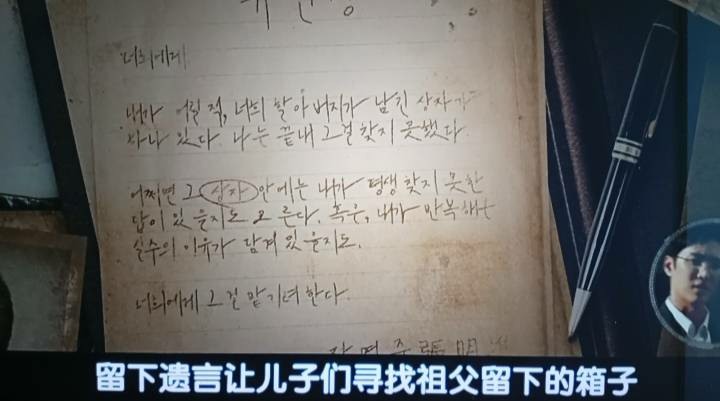 너희에게
내가 어릴 적, 너희 할아버지가 남긴 상자가
하나 있다. 나는 끝내 그걸 찾지 못했다.
어쩌면 그 상자 안에는 내가 평생 찾지 못한
답이 있을지도 모른다. 혹은, 내가 반복해온
실수의 이유가 담겨 있을지도.
너희에게 그걸 맡기려 한다.
留下遗言让儿子们寻找祖父留下的箱子